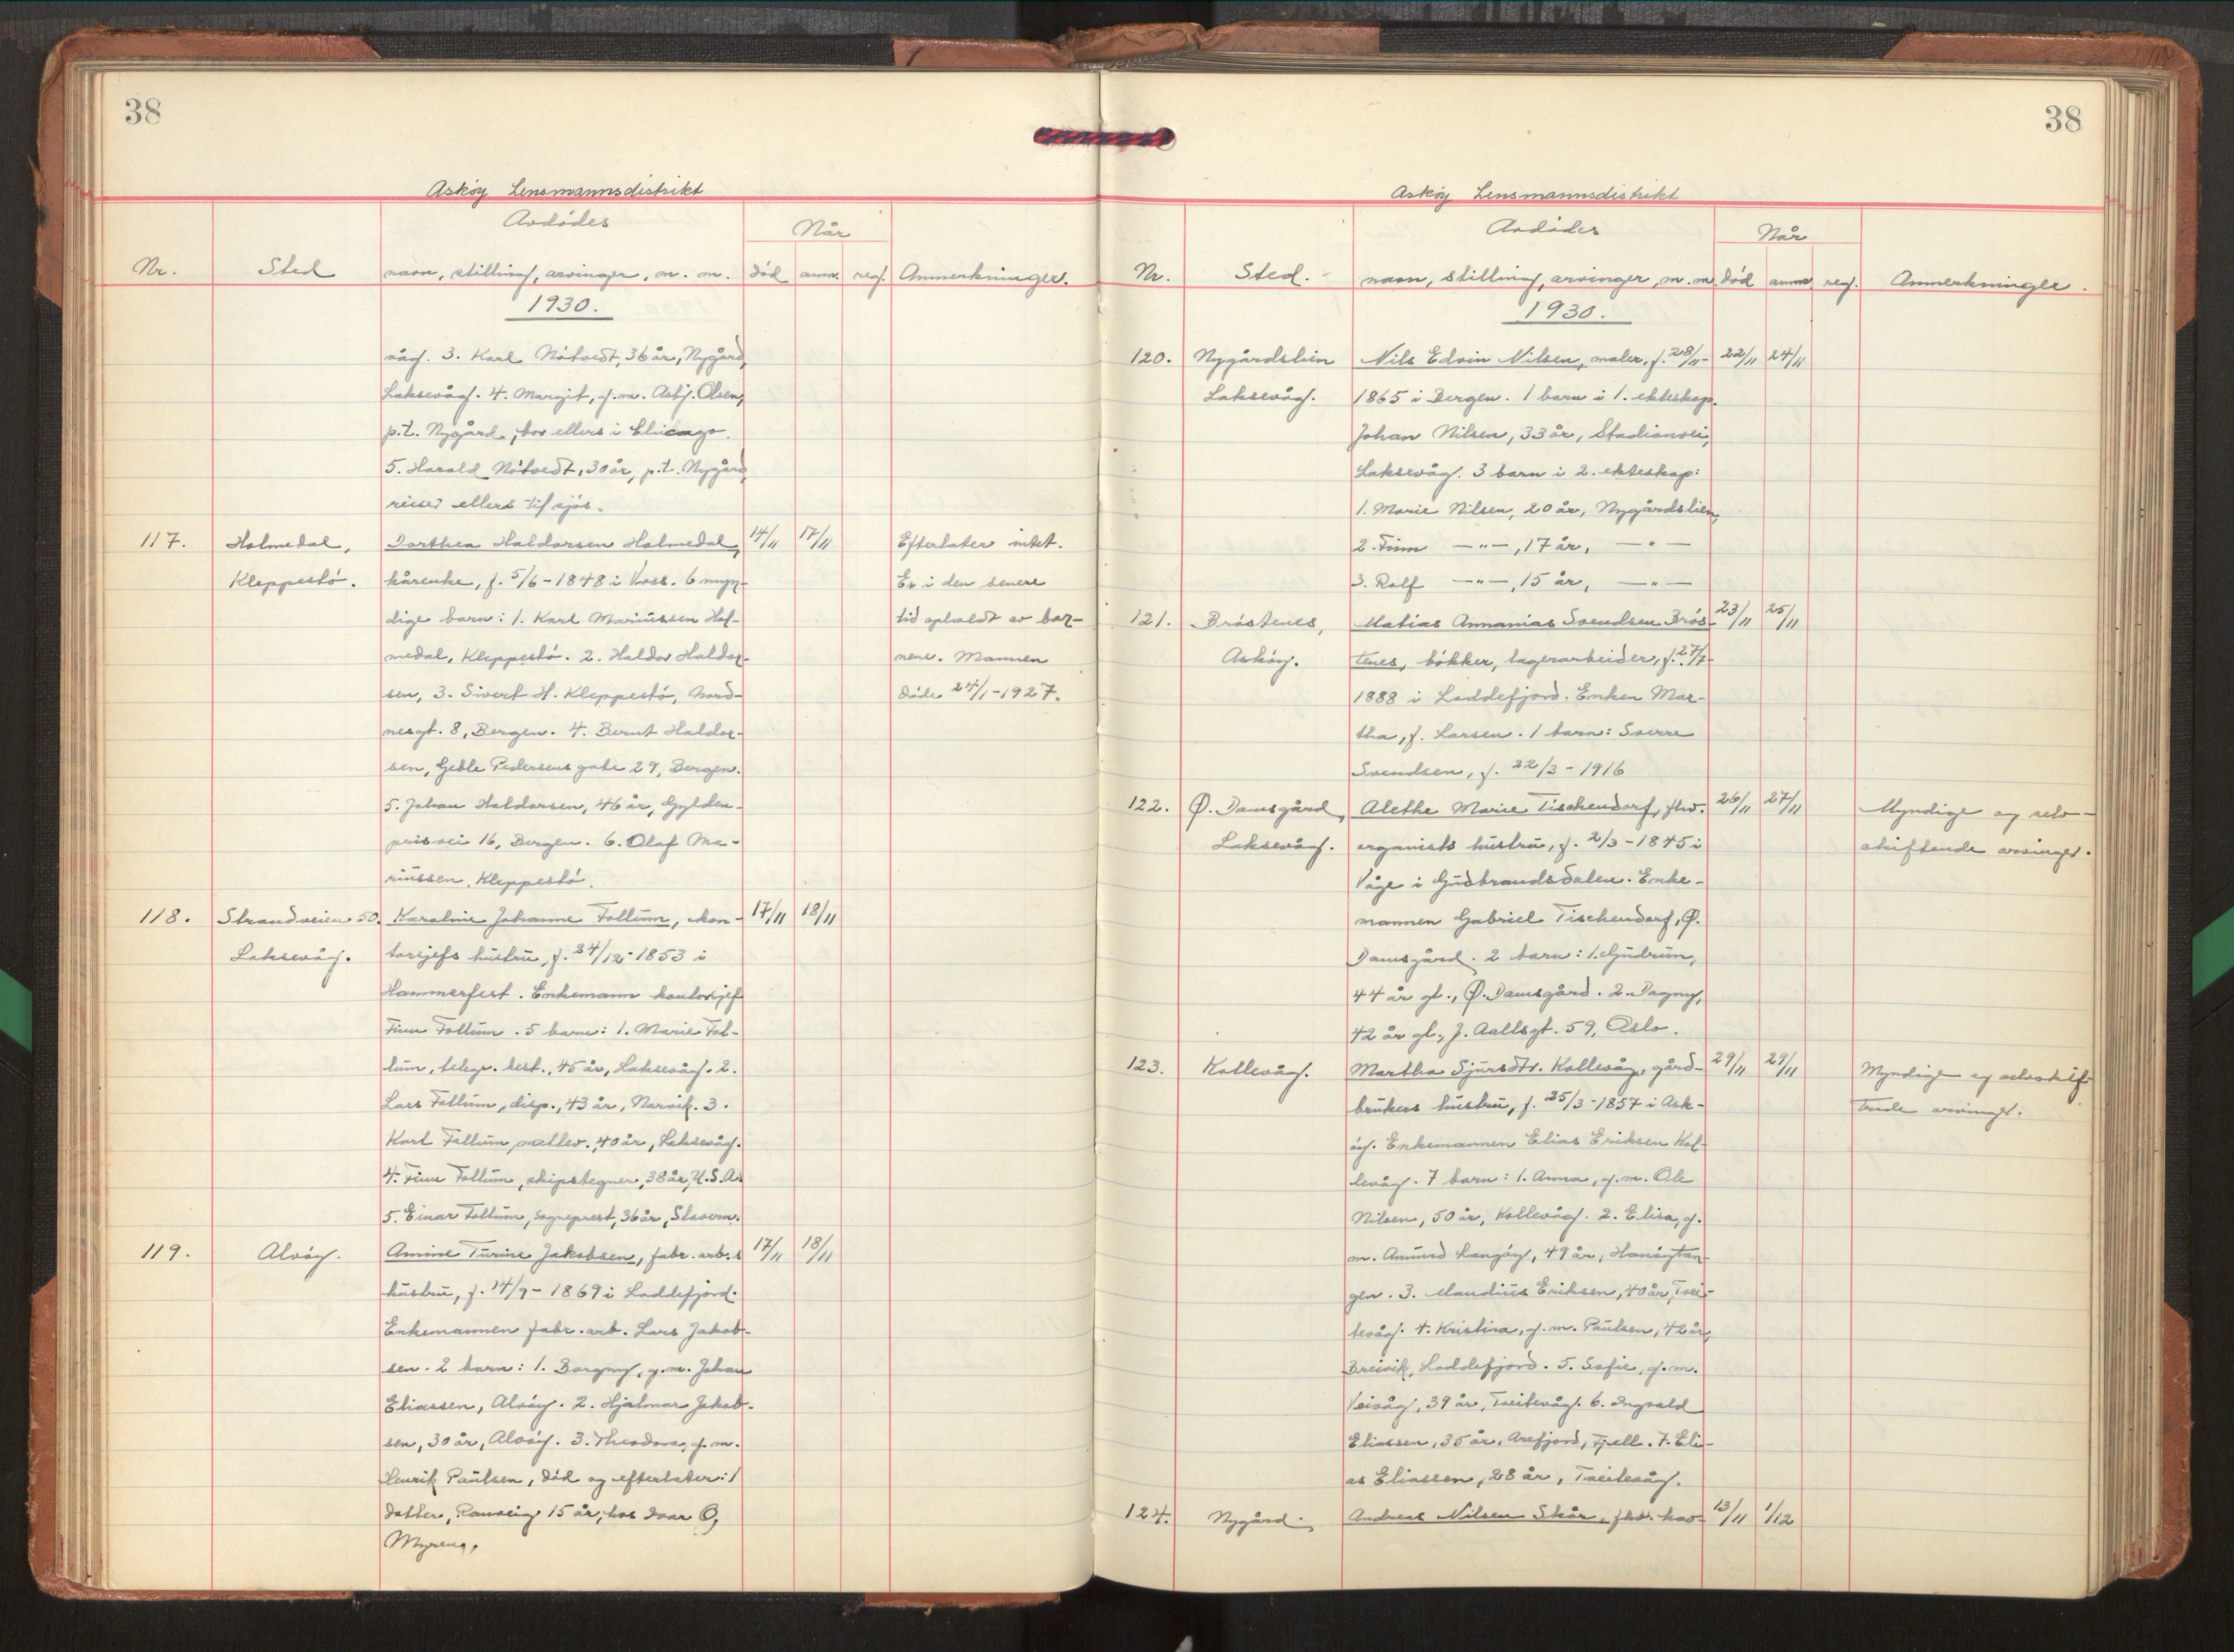 38
Askøy Lensmannsdistrikt
Avdødes
Når
Nr. Sted navn, stilling, arvinger, m. m. død anm. reg. Anmerkninger.
1930.
våg. 3. Karl Nøtvedt, 36 år, Nygård,
Laksevåg. 4. Margit, g. m. Asbj. Olsen,
p.t. Nygård, bor ellers i Chicago.
5. Harald Nøtvedt, 30 år, p.t. Nygård,
reiser ellers til sjøs.
117. Holmedal, Dorthea Haldorsen Holmedal, 14/11 17/11 Efterlater intet.
Kleppestø. kårenke, f. 5/6-1848 i Voss. 6 myn- Er i den senere
dige barn: 1. Karl Mariussen Hol- tid opholdt av bar-
medal, Kleppestø. 2. Haldor Haldor- nene. Mannen
sen, 3. Sivert H. Kleppestø, Nord- døde 24/1-1927.
nesgt. 8, Bergen. 4. Bernt Haldor-
sen, Geble Pedersens gate 29, Bergen.
5. Johan Haldorsen, 46 år, Gylden-
prisvei 16, Bergen. 6. Olaf Ma-
riussen, Kleppestø.
118. Strandveien 50. Karoline Johanne Follum, kon- 17/11 18/11
Laksevåg. torsjefs hustru, f. 24/12-1853 i
Hammerfest. Enkemann kontorsjef
Finn Follum. 5 barn: 1. Marie Fol-
lum, telegr. best., 45 år, Laksevåg. 2.
Lars Follum, disp., 43 år, Narvik. 3.
Karl Follum, 40 år, Laksevåg.
4. Finn Follum, skipstegner, 38 år, U.S.A.
5. Einar Follum, sogneprest, 36 år, Stavern.
119. Alvøy. Amine Turine Jakobsen, fabr. arb.s 17/11 18/11
hustru, f. 14/9-1869 i Loddefjord.
Enkemannen fabr. arb. Lars Jakob-
sen. 2 barn: 1. Borgny, g. m. Johan
Eliassen, Alvøy. 2. Hjalmar Jakob-
sen, 30 år, Alvøy. 3. Theodora, g. m.
Henrik Paulsen, død og efterlater: 1
datter, Ranveig 15 år, hos Ivar O,
Myren,
38
Askøy Lensmannsdistrikt
Avdødes
Når
Nr. Sted. navn, stilling, arvinger, m. m. død anm. reg. Anmerkninger.
1930.
120. Nygårdslien Nils Edvin Nilsen, maler, f. 28/11- 22/11 24/11
Laksevåg. 1865 i Bergen. 1 barn i 1. ekteskap.
Johan Nilsen, 33 år, Stadionvei,
Laksevåg. 3 barn i 2. ekteskap:
1. Marie Nilsen, 20 år, Nygårdslien,
2. Finn —"—, 17 år, —"—
3. Rolf —"—, 15 år, —"—
121. Brøstenes, Matias Annanias Svendsen Brøs- 23/11 25/11
Askøy. tenes, bøkker, lagerarbeider, f. 27/7-
1888 i Loddefjord. Enken Mar-
tha, f. Larsen. 1 barn: Sverre
Svendsen, f. 22/3-1916
122. Ø. Damsgård, Alethe Marie Tischendorf, fhv. 26/11 27/11 Myndige og selv-
Laksevåg. organists hustru, f. 2/3-1845 i skiftende arvinger.
Våge i Gudbrandsdalen. Enke-
mannen Gabriel Tischendorf, Ø.
Damsgård. 2 barn: 1. Gudrun,
44 år gl., Ø. Damsgård. 2. Dagny,
42 år gl., J. Aallsgt. 59, Oslo.
123. Kollevåg. Martha Sjursdtr. Kollevåg, gård- 29/11 29/11 Myndige og selvskif-
brukers hustru, f. 25/3-1857 i Ask- tende arvinger.
øy. Enkemannen Elias Eriksen Kol-
levåg. 7 barn: 1. Anna, g. m. Ole
Nilsen, 50 år, Kollevåg. 2. Elisa, g.
m. Amund Langøy, 49 år, Hanøytan-
gen. 3. Mandius Eriksen, 40 år, Tvei-
tevåg. 4. Kristina, g. m. Paulsen, 42 år,
Breivik, Loddefjord. 5. Sofie, g. m.
Veivåg, 39 år, Tveitevåg. 6. Ingvald
Eliassen, 35 år, Arefjord, Fjell. 7. Eli-
as Eliassen, 28 år, Tveitevåg.
124. Nygård. Andreas Nilsen Skår, fhv. hav- 13/11 1/12